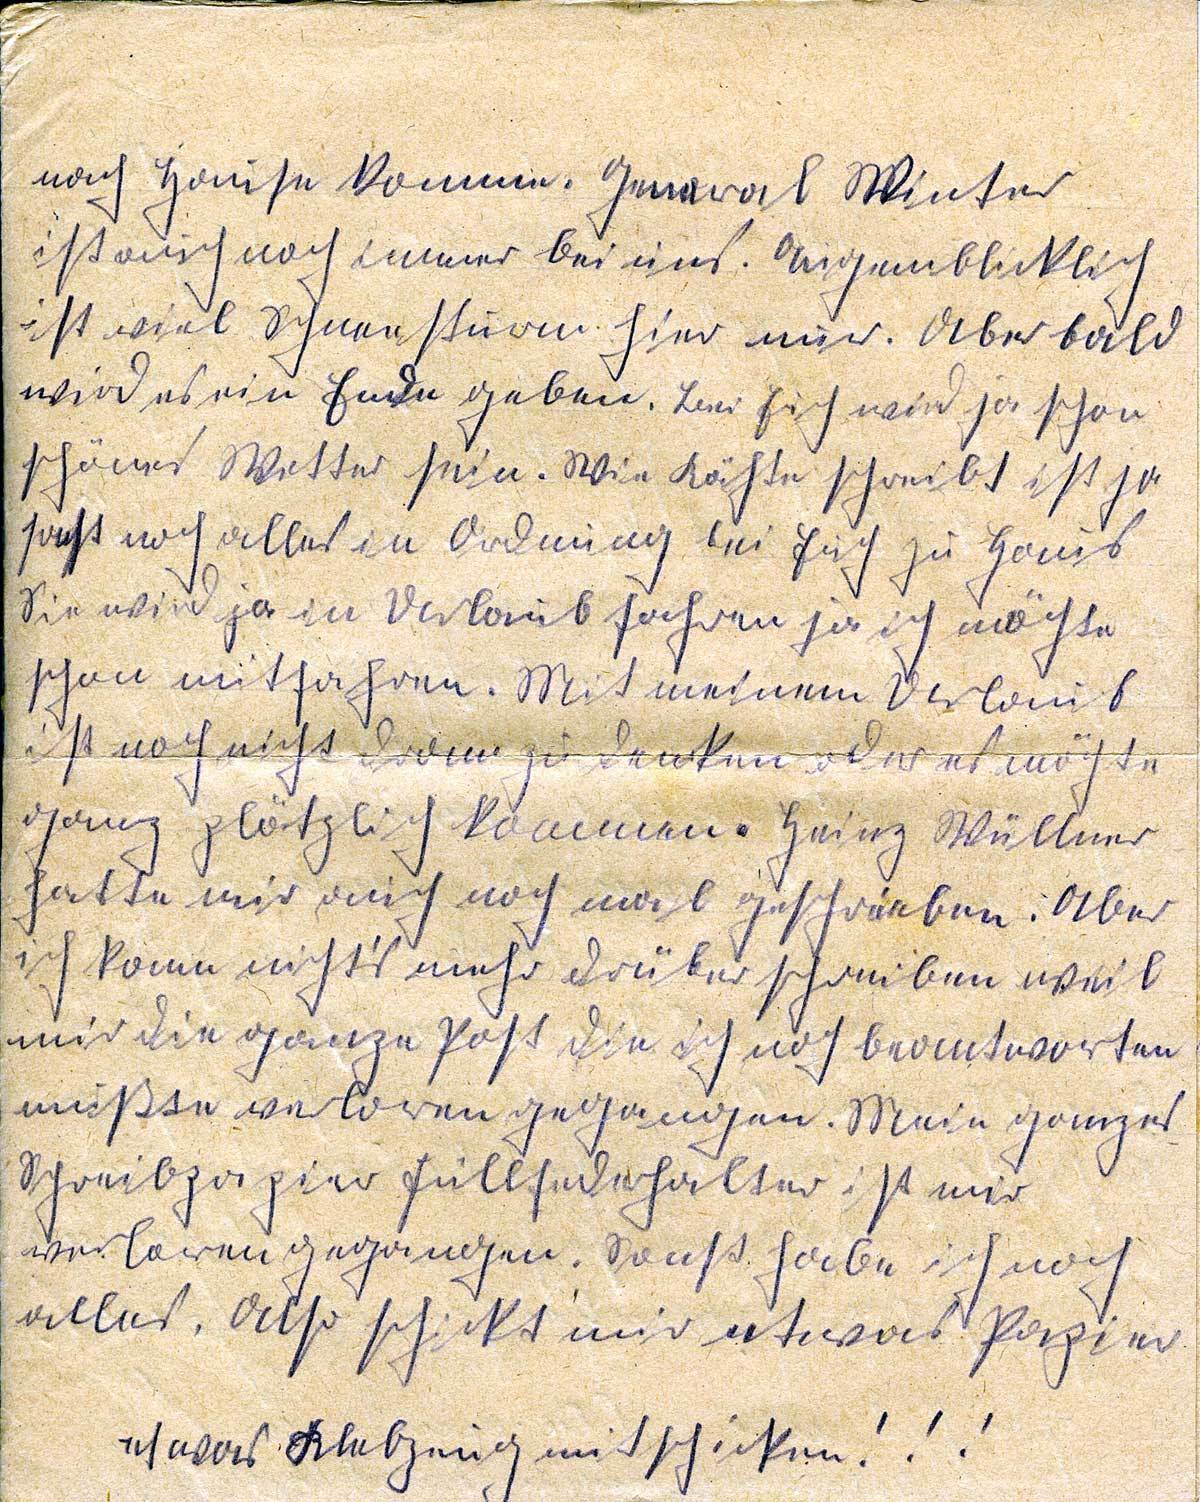 nach Hause komme. General Winter
ist auch noch immer bei uns. Augenblicklich
ist viel Schneesturm hier nur. Aber bald
wird es ein Ende geben. Bei Euch wird ja schon
schönes Wetter sein. Wie Käthe schreibt ist ja
sonst noch alles in Ordnung bei Euch zu Haus
Sie wird ja in Urlaub fahren ja ich möchte
schon mitfahren. Mit meinem Urlaub
ist noch nicht dran zu denken oder es möchte
ganz plötzlich kommen. Heinz Wüllner
hatte mir auch noch mal geschrieben. Aber
ich kann nicht's mehr drüber schreiben weil
mir die ganze Post die ich noch beantworten
müßte verloren gegangen. Mein ganzes
Schreibpapier Füllfederhalter ist mir
verloren gegangen. Sonst habe ich noch
alles. Also schickt mir etwas Papier
etwas Klebzeug mitschicken! ! !